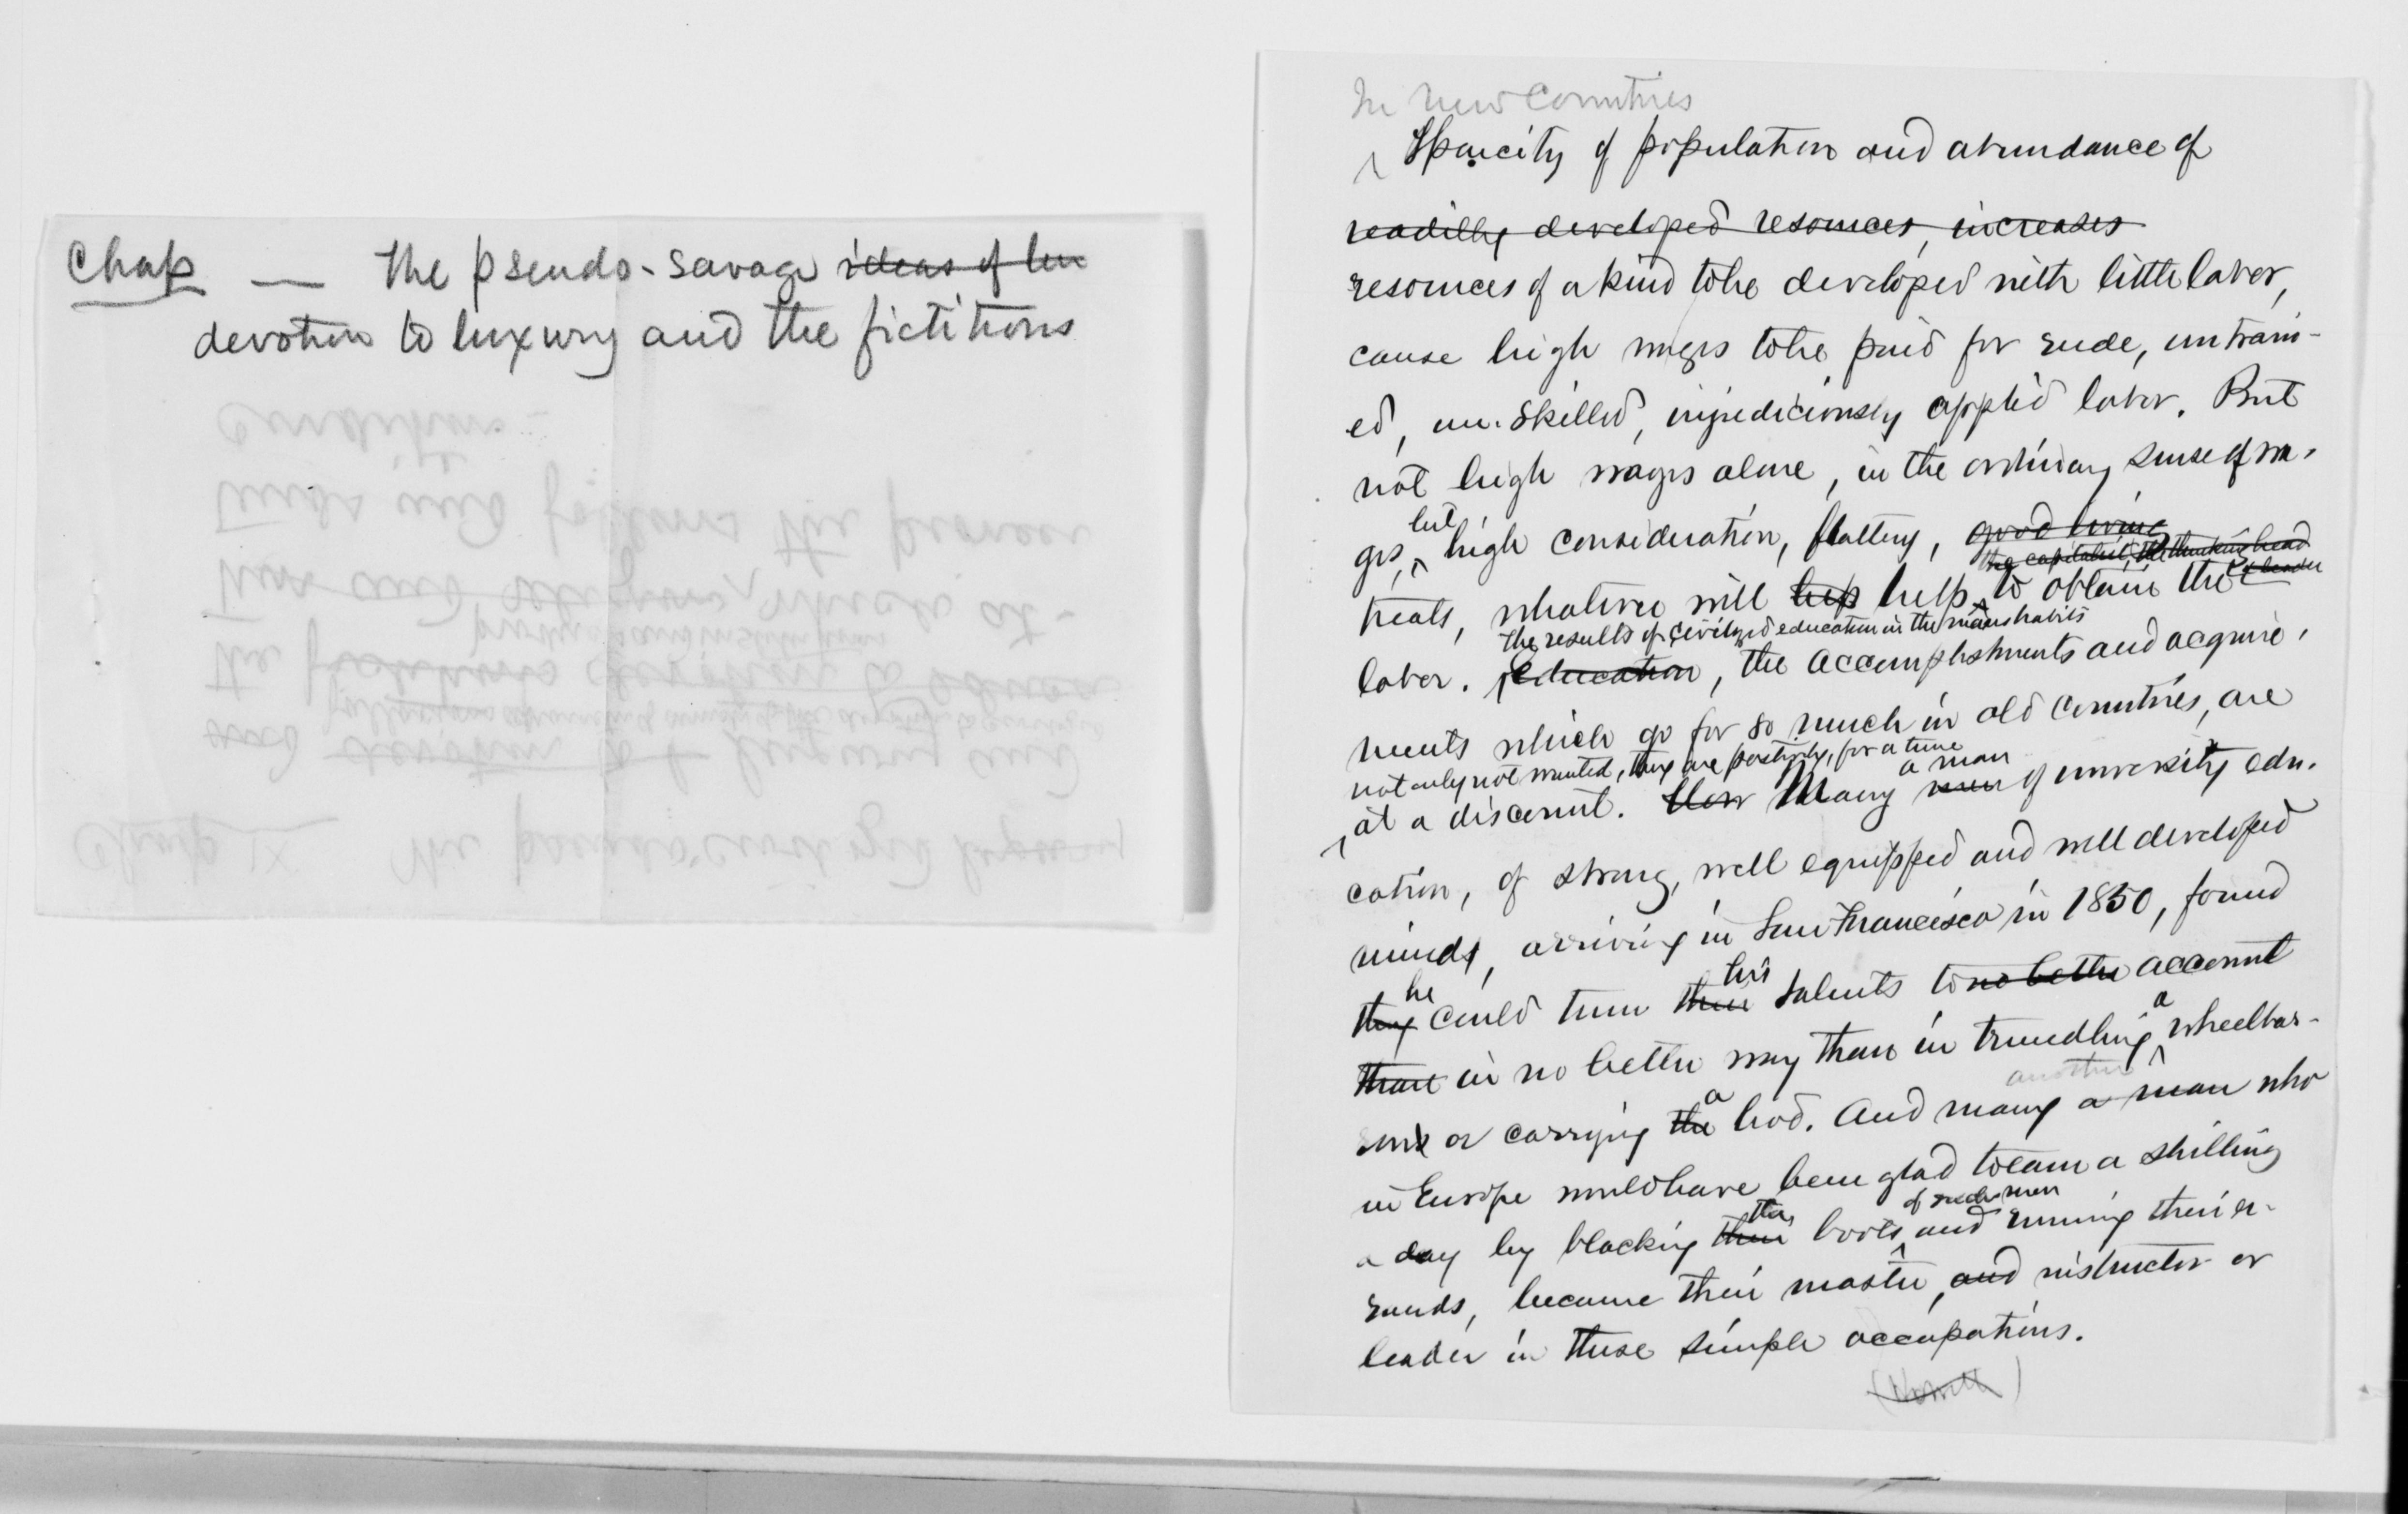 Chap — The pseudo-savage ideas of lux
devotion to luxury and the fictitious
In new Countries
Sparcity of population and abundance of
readilly developed resources, increases
resources of a kind to be developed with little labor,
cause high wages to be paid for rude, untrain-
ed, un-skilled, injudiciously applied labor. But
not high wages alone, in the ordinary sense of wa-
but
ges, high consideration, flattery, good living
the capitalist, the thinking head
or leader
treats, whatever will help help to obtain the
the results of civilized education in the mans habits
labor. Education, the accomplishments and acquire-
ments which go for so much in old countries, are
not only not wanted, they are positively, for a time
at a discount. How Many men of university edu-
a man
cation, of strong, well equipped and well developed
minds, arriving in San Francisco in 1850, found
he his
they could turn their talents to no better account
than in no better way than in trundling a wheelbar-
another
row or carrying the a hod. And many a man who
in Europe would have been glad to earn a shilling
the of such men
a day by blacking their boots and running their er-
rands, became their master, and instructor or
leader in these simple occupations.